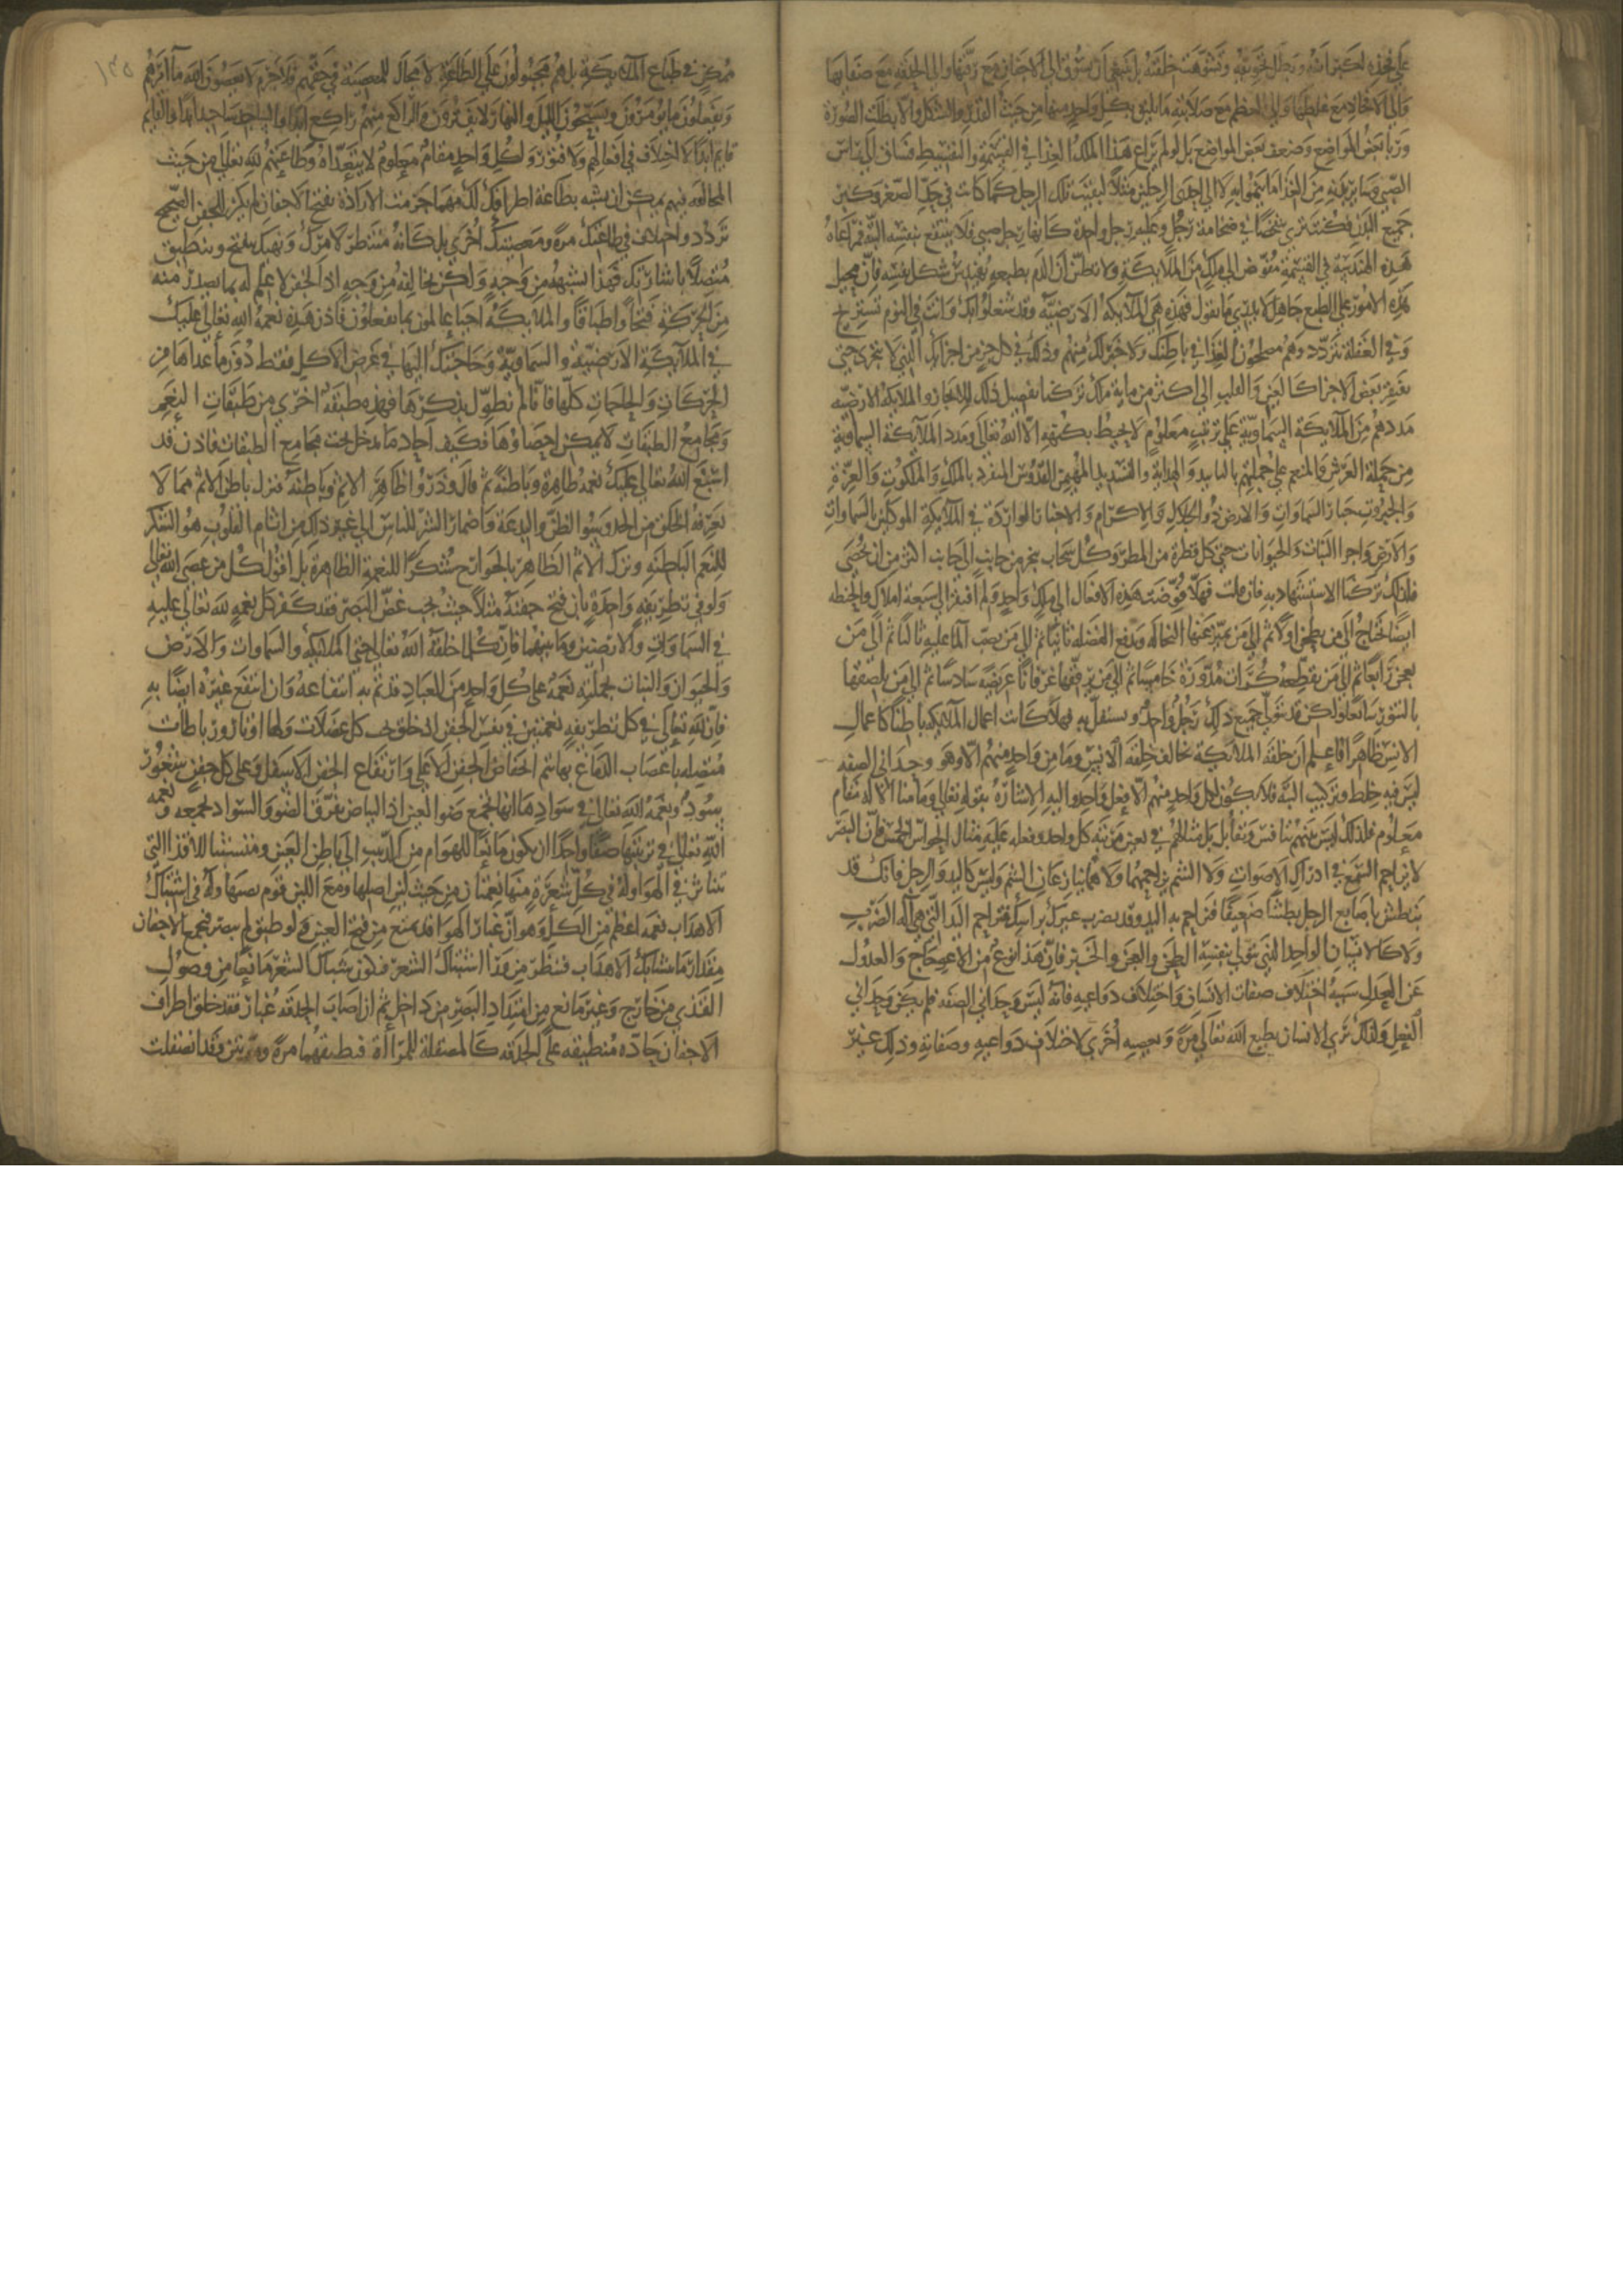 على فخذه لكبر انفه وبطل تجويفه وتشوهت خلقته بل ينبغي ان يسوق الى الاجفان مع رقتها والى الحدقة مع صفايها
والى الافخاذ مع غلظها والى العظم مع صلابته ما يليق بكل واحد منها من حيث القدر والشكل والا بطلت الصورة
وربا بعض المواضع وضعف بعض المواضع بل لو لم يراع هذا الملك العدل في القسمة والتقسيط فساق الى راس
الصبي وساير بدنه من الغذا ما ينموا به الا الى احدى الرجلين مثلا لبقيت تلك الرجل كما كانت في حد الصغر وكبر
جميع البدن فكنت ترى شخصا في ضخامة رجل وعليه رجل واحدة كانها رجل صبي فلا ينتفع بنفسه البتة فمراعاة
هذه الهندسة في القسمة مفوض الى ملك من الملايكة ولا تظنن ان الدم بطبعه يهندس شكل نفسه فان محيل
هذه الامور على الطبع جاهل لا يدري ما يقول فهذه هي الملايكة الارضية وقد شغلوا بك وانت في النوم تستريح
وفي الغفلة تتردد وهم يصلحون الغذا في باطنك ولا خبر لك منهم وذلك في كل جزء من اجزايك التي لا تتجزى حتى
يفتقر بعض الاجزا كالعين والقلب الى اكثر من ماية ملك تركنا تفصيل ذلك للايجاز والملايكة الارضية
مددهم من الملايكة السماوية على ترتيب معلوم لا يحيط بكنهه الا الله تعالى ومدد الملايكة السماوية
من حملة العرش والمنعم على جملتهم بالتاييد والهداية والتسديد المهيمن القدوس المنفرد بالملك والملكوت والعزة
والجبروت جبار السماوات والارض ذو الجلال والاكرام والاخبار الواردة في الملايكة الموكلين بالسماوات
والارض واجزا النبات والحيوانات حتى كل قطرة من المطر وكل سحاب ينجر من جانب الى جانب اكثر من ان تحصى
فلذلك تركنا الاستشهاد به فان قلت فهلا فوضت هذه الافعال الى ملك واحد ولم افتقر الى سبعة املاك والحنطة
ايضا تحتاج الى من يطحن اولا ثم الى من يميز عنها النخالة ويدفع الفضلة ثانيا ثم الى من يصب الما عليه ثالثا ثم الى من
يعجن رابعا ثم الى من يقطعه كرات مدورة خامسا ثم الى من يرققها رغفانا عريضة سادسا ثم الى من يلصقها
بالتنور سابعا ولكن قد يتولى جميع ذلك رجل واحد ويستقل به فهلا كانت اعمال الملايكة باطنا كاعمال
الانس ظاهرا فاعلم ان خلقة الملايكة تخالف خلقة الانس وما من واحد منهم الا وهو وحداني الصفة
ليس فيه خلط وتركيب البتة فلا يكون لكل واحد منهم الا فعل واحد واليه الاشارة بقوله تعالى وما منا الا له مقام
معلوم فلذلك ليس بينهم تنافس وتقابل بل مثالهم في تعين مرتبة كل واحد وفعله عليه مثال الحواس الخمس فان البصر
لا يزاحم السمع في ادراك الاصوات ولا الشم يزاحمهما ولا هما ينازعان الشم وليس كاليد والرجل فانك قد
تبطش باصابع الرجل بطشا ضعيفا فتزاحم به اليد وقد تضرب غيرك براسك فتزاحم اليد التي هي آلة الضرب
ولا كالانسان الواحد الذي يتولى بنفسه الطحن والعجن والخبز فان هذا نوع من الاعوجاج والعدول
عن العدل سببه اختلاف صفات الانسان واختلاف دواعيه فانه ليس وحداني الصفة فلم يكن وحداني
الفعل ولذلك ترى الانسان يطيع الله تعالى مرة ويعصيه اخرى لاختلاف دواعيه وصفاته وذلك غير
١٣٥
ممكن في طباع الملايكة بل هم مجبولون على الطاعة لا مجال للمعصية في حقهم فلا جرم لا يعصون الله ما امرهم
ويفعلون ما يومرون ويسبحون الليل والنهار لا يفترون والراكع منهم راكع ابدا والساجد ساجد ابدا والقايم
قايم ابدا لا اختلاف في افعالهم ولا فتور ولكل واحد مقام معلوم لا يتعداه وطاعتهم لله تعالى من حيث
المخالفة فيهم يمكن ان تشبه بطاعة اطرافك لك مهما جزمت الارادة بفتح الاجفان لم يكن للجفن الصحيح
تردد واختلاف في طاعتك مرة ومعصيتك اخرى بل كانه منتظر لامرك ونهيك ينفتح وينطبق
متصلا باشارتك فهذا يشبهه من وجه ولكن يخالفه من وجه اذ الجفن لا علم له بما يصدر منه
من الحركة فتحا واطباقا والملايكة احيا عالمون بما يفعلون فاذن هذه نعمة الله تعالى عليك
في الملايكة الارضية والسماوية وحاجتك اليها في غرض الاكل فقط دون ما عداها من
الحركات والحاجات كلها فانا لم نطول بذكرها فهذه طبقة اخرى من طبقات النعم
ومجامع الطبقات لا يمكن احصاوها فكيف احاد ما يدخل تحت مجامع الطبقات فاذن قد
اسبغ الله تعالى عليك نعمه ظاهرة وباطنة ثم قال وذروا ظاهر الاثم وباطنه فترك باطن الاثم مما لا
يعرفه الخلق من الحسد وسو الظن والبدعة واضمار الشر للناس الى غير ذلك من اثام القلوب هو الشكر
للنعم الباطنة وترك الاثم الظاهر بالجوارح شكر للنعمة الظاهرة بل اقول كل من عصى الله تعالى
ولو في تطريفة واحدة بان فتح جفنه مثلا حيث يجب غض البصر فقد كفر كل نعمة لله تعالى عليه
في السماوات والارضين وما بينهما فان كل ما خلقه الله تعالى حتى الملايكة والسماوات والارض
والحيوان والنبات بجملته نعمة على كل واحد من العباد قد تم به انتفاعه وان انتفع غيره ايضا به
فان لله تعالى في كل تطريفة نعمتين في نفس الجفن اذ خلق تحت كل عضلات ولها اوتار ورباطات
متصلة باعصاب الدماغ بها يتم انخفاض الجفن الاعلى وارتفاع الجفن الاسفل وعلى كل جفن شعور
سود ونعمة الله تعالى في سوادها انها تجمع ضو العين اذ البياض يفرق الضو والسواد يجمعه ونعمة
الله تعالى في ترتيبها صفا واحدا ان يكون مانعا للهوام من الدبيب الى باطن العين ومتشبثا للاقذا التي
تتناثر في الهوا وله في كل شعرة منها نعمتان من حيث لين اصلها ومع اللين قوام نصبها وله في اشتباك
الاهداب نعمة اعظم من الكل وهو ان غبار الهوا قد يمنع من فتح العين ولو طبق لم يبصر فيجمع الاجفان
مقدار ما تتشابك الاهداب فينظر من ورا اشتباك الشعر فيكون شباك الشعر مانعا من وصول
القذى من خارج وغير مانع من امتداد البصر من داخل ثم ان اصاب الحدقة غبار فقد خلق اطراف
الاجفان حادة منطبقة على الحدقة كالمصقلة للمراة فيطبقهما مرة ومرتين وقد انصقلت